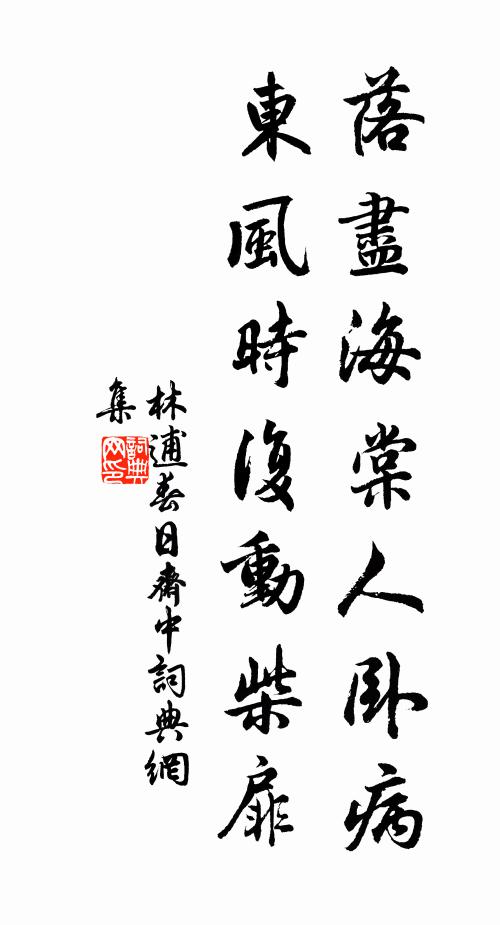 落盡海棠人卧病
東風時復動柴扉
林逋春日齋中詞典網
集
詞典網印